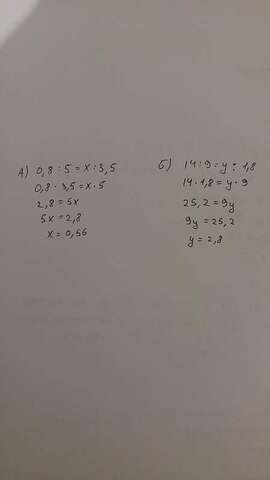 А) 0,8 : 5 = x : 3,5
0,8 · 3,5 = x · 5
2,8 = 5x
5x = 2,8
x = 0,56
Б) 14 : 9 = y : 1,8
14 · 1,8 = y · 9
25,2 = 9y
9y = 25,2
y = 2,8